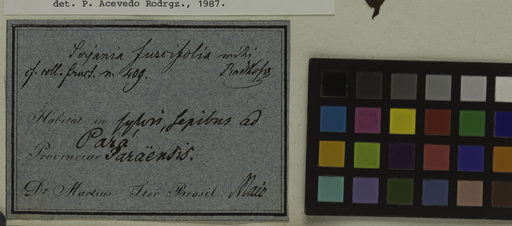 det. P. Acevedo Rodrgz., 1987.
Serjania fuscifolia mihi
cf. coll. fruct. n. 409. Radlkofer
Habitat in sylvis, sepibus ad
Pará,
Provinciae Paraënsis.
Dr. Martius Iter Brasil. Maio